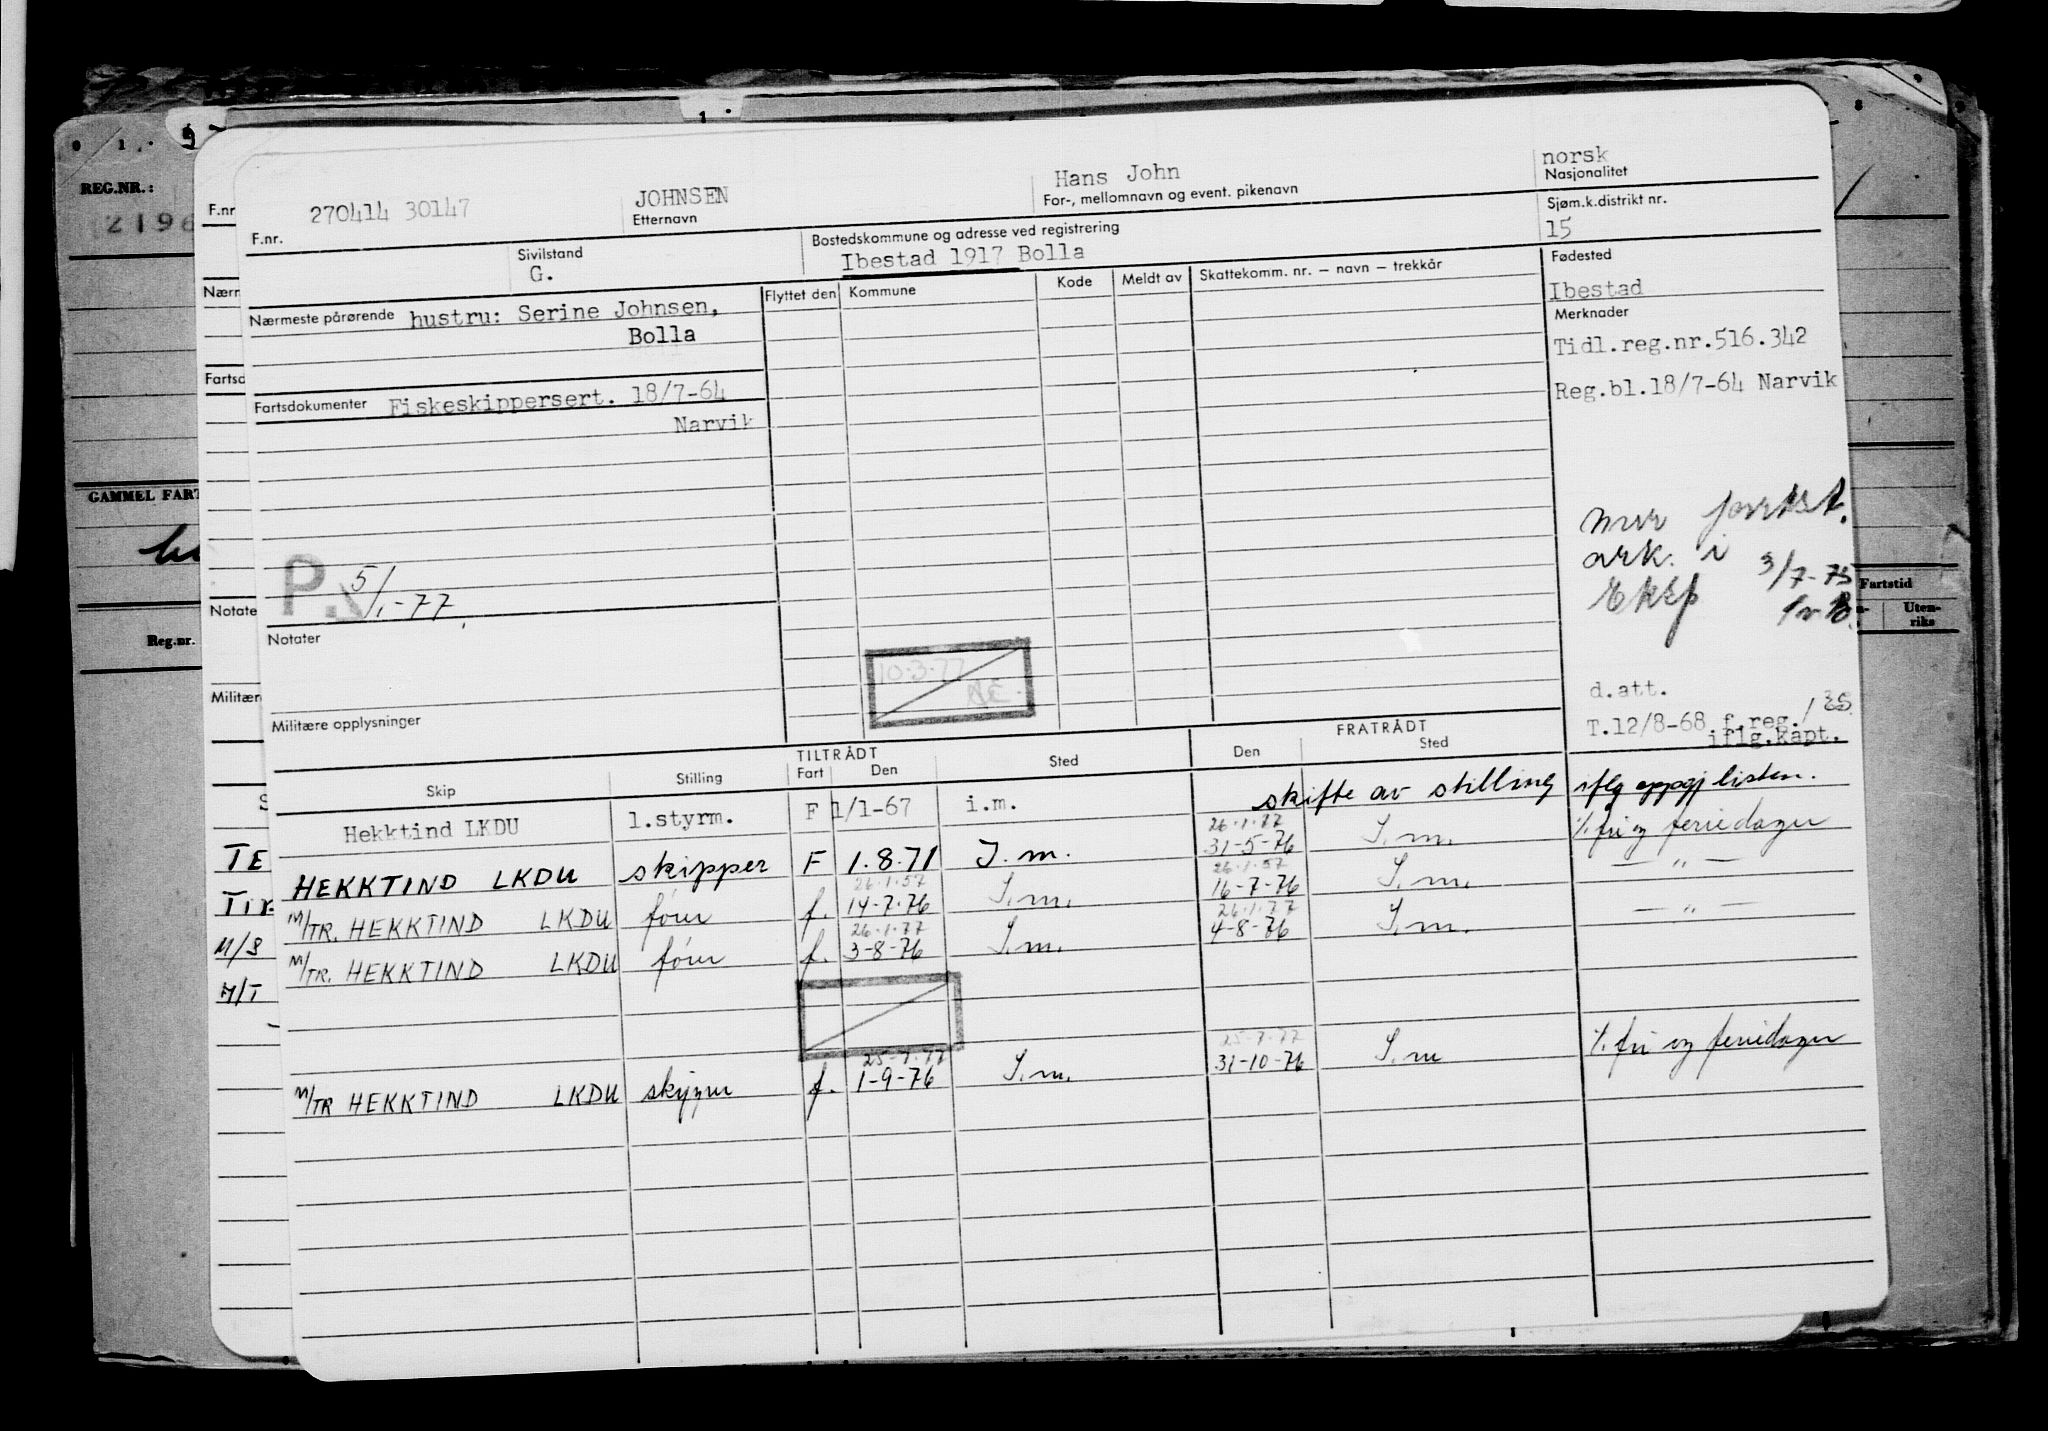 REG.NR.:
F.nr. 270414 30147
JOHNSEN
Etternavn
Hans John
For-, mellomnavn og event. pikenavn
norsk
Nasjonalitet
Sivilstand
G.
Bostedskommune og adresse ved registrering
Ibestad 1917 Bolla
Sjøm.k.distrikt nr.
15
Nærmeste pårørende hustru: Serine Johnsen,
Bolla
Flyttet den Kommune Kode Meldt av Skattekomm. nr. – navn – trekkår
Fødested
Ibestad
Merknader
Tidl.reg.nr.516.342
Reg.bl.18/7-64 Narvik
Fartsdokumenter Fiskeskippersert. 18/7-64
Narvik
GAMMEL FART
ark. i
3/7-75
P. 5/1-77
Notater
10.3.77
Militære opplysninger
d.att.
T.12/8-68 f.reg.
iflg.kapt.
Reg.nr.
Fartstid
Uten-
riks
TILTRÅDT FRATRÅDT
Skip Stilling Fart Den Sted Den Sted
Hekktind LKDU 1.styrm. F 1/1-67 i.m. skifte av stilling iflg oppgj listen.
26.1.77
HEKKTIND LKDU skipper F 1.8.71 I.m. 31-5-76 I.m. ÷ fri og feriedager
M/TR. HEKKTIND LKDU fører f. 14-7-76 I.m. 16-7-76 I.m. — " —
26.1.77 26.1.77
M/TR. HEKKTIND LKDU fører f. 3-8-76 I.m. 4-8-76 I.m. — " —
25-7-77 25-7-77
M/TR HEKKTIND LKDU skipper f. 1-9-76 I.m. 31-10-76 I.m ÷ fri og feriedager